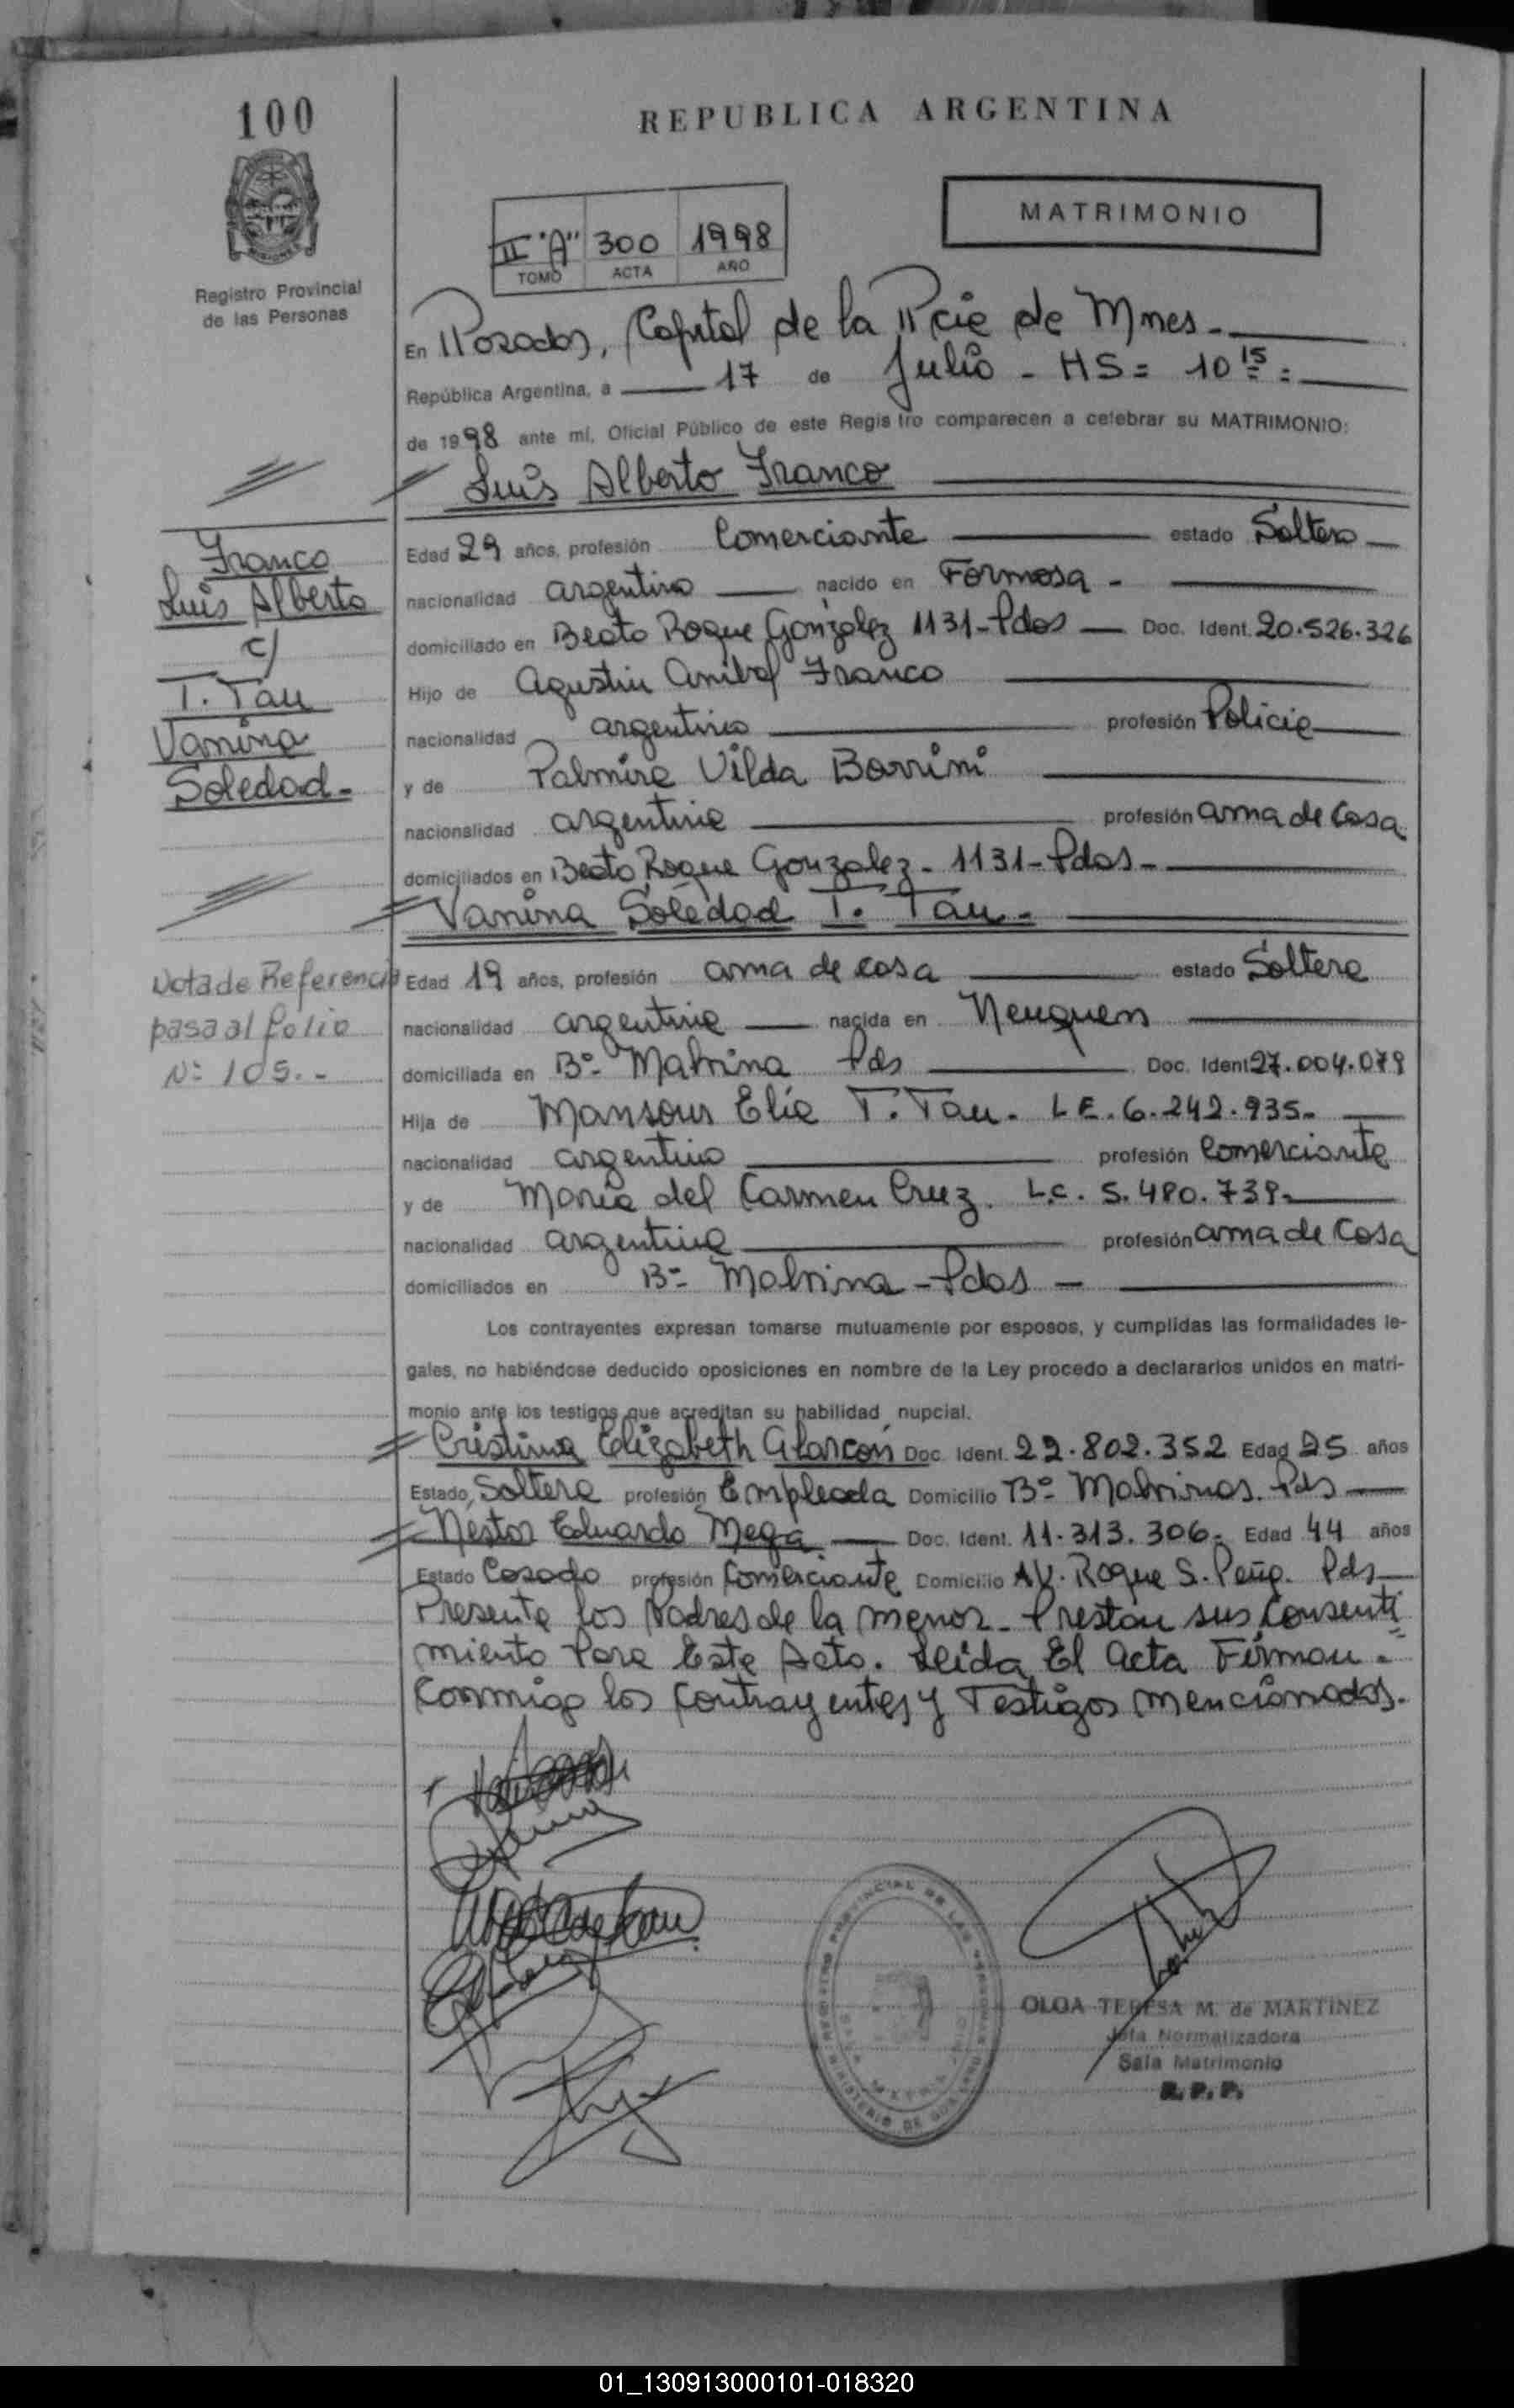 100
REPUBLICA ARGENTINA
MATRIMONIO
II "A" 300 1998
TOMO ACTA AÑO
Registro Provincial
de las Personas
En Posadas, Capital de la Pcia de Mnes -
República Argentina, a 17 de Julio - HS = 10 15 =
de 1998 ante mí, Oficial Público de este Registro comparecen a celebrar su MATRIMONIO:
Luis Alberto Franco
Edad 29 años, profesión Comerciante estado Soltero
nacionalidad argentino nacido en Formosa -
domiciliado en Beato Roque González 1131 - Pdas Doc. Ident. 20.526.326
Hijo de Agustin Anibal Franco
nacionalidad argentino profesión Policia
y de Palmira Vilda Barrini
nacionalidad argentina profesión ama de Casa
domiciliados en Beato Roque Gonzalez - 1131 - Pdas -
Vanina Soledad T. Tau -
Edad 19 años, profesión ama de casa estado Soltera
nacionalidad argentina nacida en Neuquen
domiciliada en Bº Malvina Pds Doc. Ident. 27.004.079
Hija de Mansour Elia T. Tau - L E. 6.242.935 -
nacionalidad argentino profesión Comerciante
y de Maria del Carmen Cruz. L.C. 5.480.739 -
nacionalidad argentina profesión ama de Casa
domiciliados en Bº Malvina - Pdas -
Los contrayentes expresan tomarse mutuamente por esposos, y cumplidas las formalidades le-
gales, no habiéndose deducido oposiciones en nombre de la Ley procedo a declararlos unidos en matri-
monio ante los testigos que acreditan su habilidad nupcial.
Cristina Elizabeth Alarcón Doc. Ident. 22.802.352 Edad 25 años
Estado Soltera profesión Empleada Domicilio Bº Malvinas. Pds
Nestor Eduardo Mega Doc. Ident. 11.313.306 - Edad 44 años
Estado Casado profesión Comerciante Domicilio AV. Roque S. Peña. Pds
Presente los Padres de la menor - Prestan sus Consenti
miento Para Este Acto. Leida El Acta Firman -
Conmigo los Contrayentes y Testigos mencionados.
Franco
Luis Alberto
c/
T. Tau
Vanina
Soledad -
Nota de Referencia
pasa al folio
Nº 105. -
OLGA TERESA M. de MARTINEZ
Jefa Normalizadora
Sala Matrimonio
R. P. P.
01_130913000101-018320